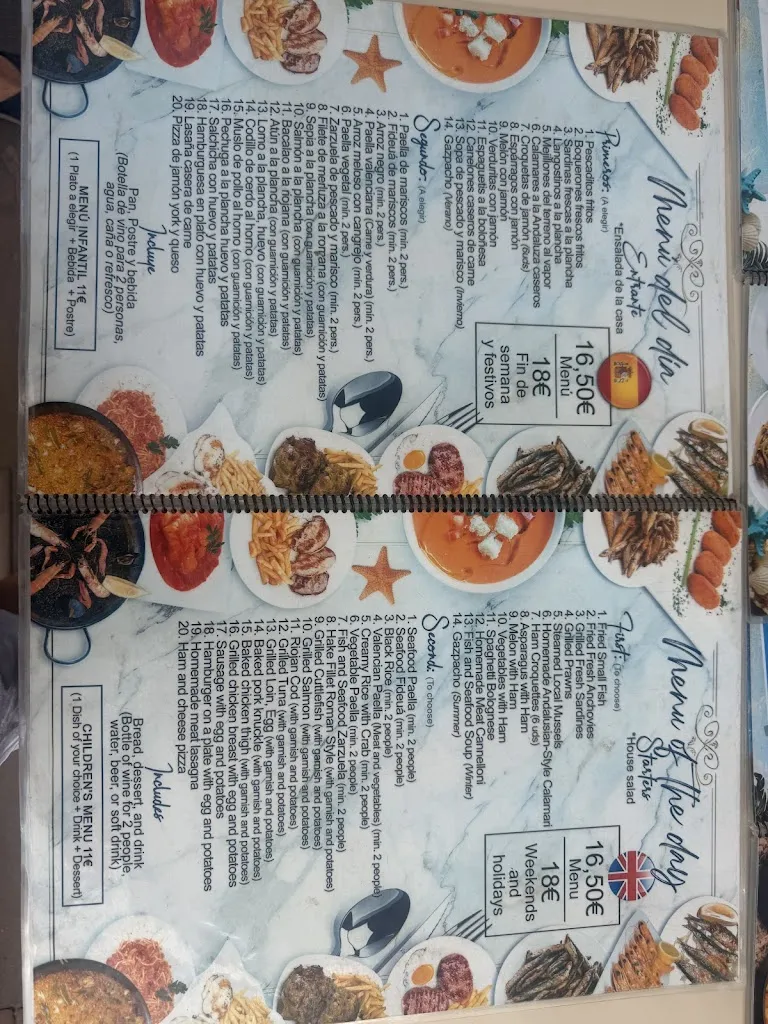 Menú del día
Entrante
*Ensalada de la casa
16,50€
Menú
18€
Fin de
semana
y festivos
Primeros: (A elegir)
1. Pescaditos fritos
2. Boquerones frescos fritos
3. Sardinas frescas a la plancha
4. Langostinos a la plancha
5. Mejillones del terreno al vapor
6. Calamares a la Andaluza caseros
7. Croquetas de jamón (6uds)
8. Espárragos con jamón
9. Melón con jamón
10. Verduritas con jamón
11. Espaguetis a la boloñesa
12. Canelones caseros de carne
13. Sopa de pescado y marisco (Invierno)
14. Gazpacho (Verano)
Segundo: (A elegir)
1. Paella de mariscos (min. 2 pers.)
2. Fideuá de mariscos (min. 2 pers.)
3. Arroz negro (min. 2 pers.)
4. Paella valenciana (Carne y verdura) (min. 2 pers.)
5. Arroz meloso con cangrejo (min. 2 pers.)
6. Paella vegetal (min. 2 pers.)
7. Zarzuela de pescado y marisco (min. 2 pers.)
8. Filete de merluza a la romana (con guarnición y patatas)
9. Sepia a la plancha (con guarnición y patatas)
10. Salmón a la plancha (con guarnición y patatas)
11. Bacalao a la riojana (con guarnición y patatas)
12. Atún a la plancha (con guarnición y patatas)
13. Lomo a la plancha, huevo (con guarnición y patatas)
14. Codillo de cerdo al horno (con guarnición y patatas)
15. Muslo de pollo al horno (con guarnición y patatas)
16. Pechuga a la plancha con huevo y patatas
17. Salchicha con huevo y patatas
18. Hamburguesa en plato con huevo y patatas
19. Lasaña casera de carne
20. Pizza de jamón york y queso
Incluye
Pan, Postre y bebida
(Botella de vino para 2 personas,
agua, caña o refresco)
MENÚ INFANTIL 11€
(1 Plato a elegir + Bebida + Postre)
Menu of the day
Starters
*House salad
16,50€
Menu
18€
Weekends
and
holidays
First: (To choose)
1. Fried Small Fish
2. Fried Fresh Anchovies
3. Grilled Fresh Sardines
4. Grilled Prawns
5. Steamed Local Mussels
6. Homemade Andalusian-Style Calamari
7. Ham Croquettes (6 uds)
8. Asparagus with Ham
9. Melon with Ham
10. Vegetables with Ham
11. Spaghetti Bolognese
12. Homemade Meat Cannelloni
13. Fish and Seafood Soup (Winter)
14. Gazpacho (Summer)
Second: (To choose)
1. Seafood Paella (min. 2 people)
2. Seafood Fideuá (min. 2 people)
3. Black Rice (min. 2 people)
4. Valencian Paella (Meat and vegetables) (min. 2 people)
5. Creamy Rice with Crab (min. 2 people)
6. Vegetable Paella (min. 2 people)
7. Fish and Seafood Zarzuela (min. 2 people)
8. Hake Fillet Roman Style (with garnish and potatoes)
9. Grilled Cuttlefish (with garnish and potatoes)
10. Grilled Salmon (with garnish and potatoes)
11. Riojan Cod (with garnish and potatoes)
12. Grilled Tuna (with garnish and potatoes)
13. Grilled Loin, Egg (with garnish and potatoes)
14. Baked pork knuckle (with garnish and potatoes)
15. Baked chicken thigh (with garnish and potatoes)
16. Grilled chicken breast with egg and potatoes
17. Sausage with egg and potatoes
18. Hamburger on a plate with egg and potatoes
19. Homemade meat lasagna
20. Ham and cheese pizza
Includes
Bread, dessert, and drink
(Bottle of wine for 2 people,
water, beer, or soft drink)
CHILDREN'S MENU 11€
(1 Dish of your choice + Drink + Dessert)